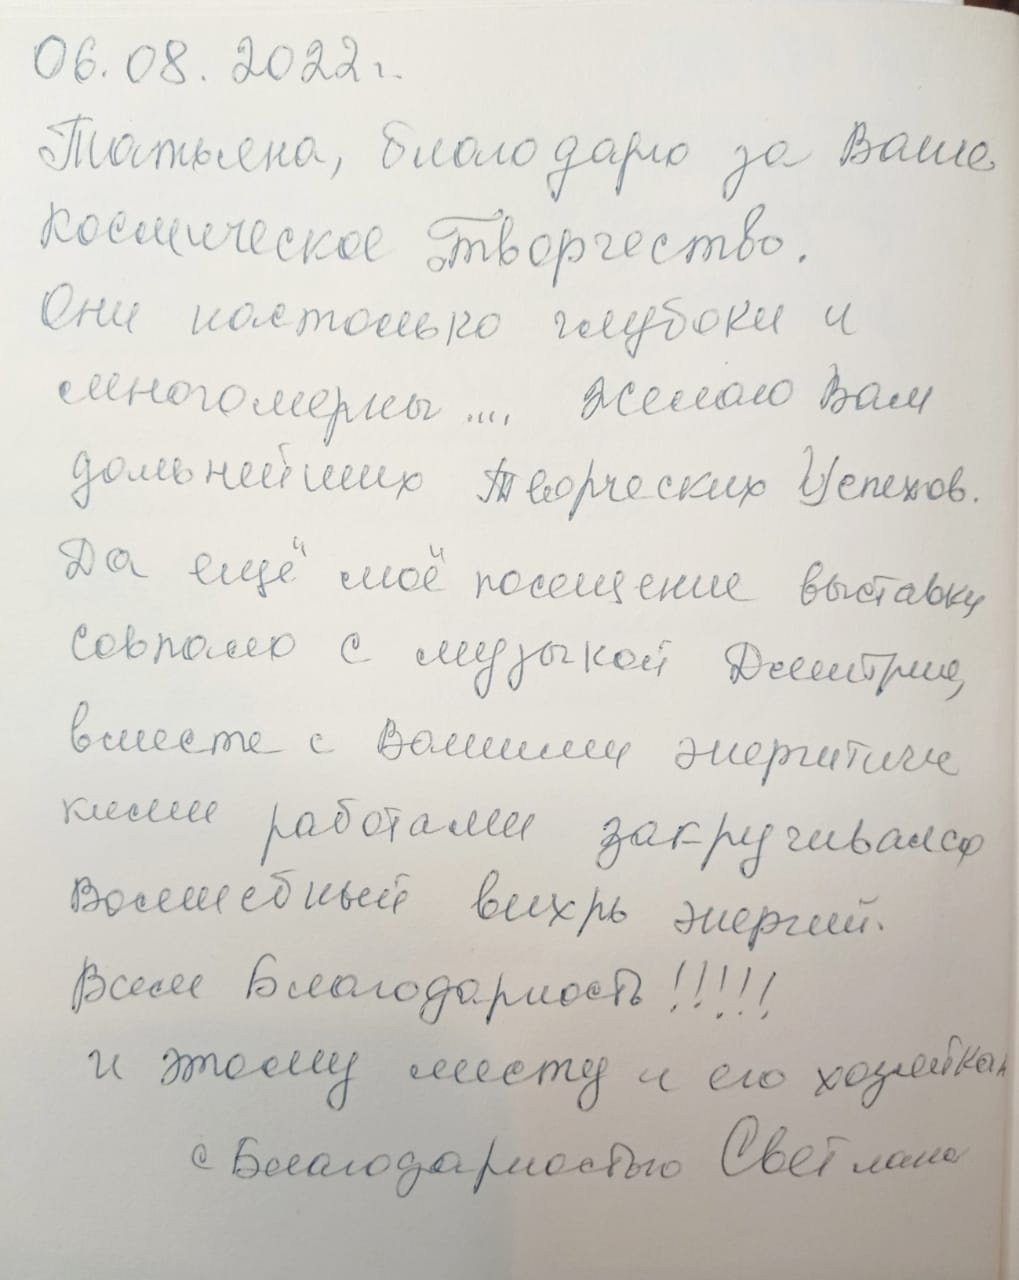 06.08.2022г.
Татьяна, благодарю за Ваше
космическое Творчество.
Они настолько глубоки и
многомерны .... Желаю Вам
дальнейших Творческих Успехов.
Да ещё моё посещение выставки
совпало с музыкой Дмитрия,
вместе с Вашими энергитиче
кими работами закручивался
Волшебный вихрь энергий.
Всем Благодарность!!!!!
и этому месту и его хозяйкам
с Благодарностью Светлана